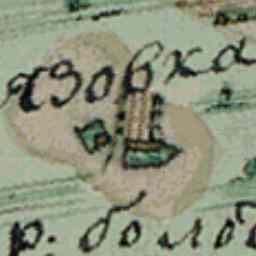 язовка
р. болo